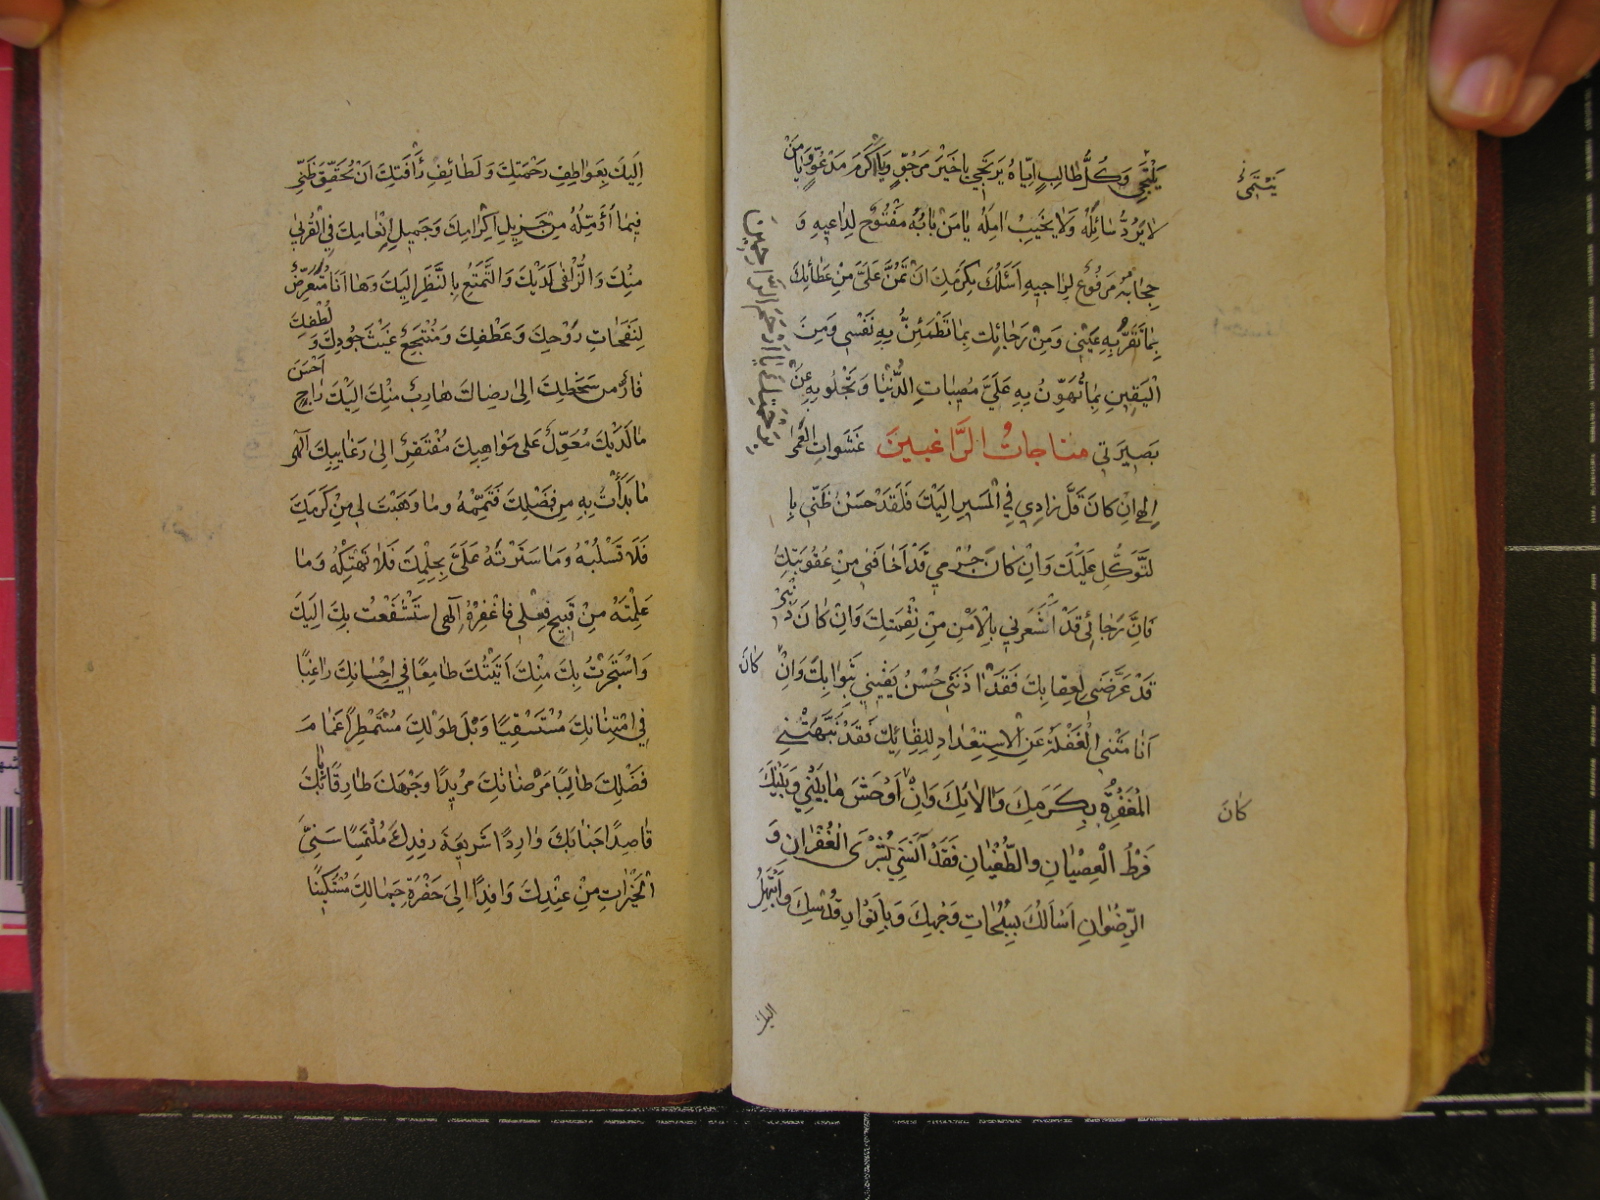 يَلْتَجِي وَكُلُّ طَالِبٍ اِيَّاهُ يَرْتَجِي يَا خَيْرَ مَرْجُوٍّ وَيَا اَكْرَمَ مَدْعُوٍّ وَيَا مَنْ
لَا يَرُدُّ سَائِلَهُ وَلَا يُخَيِّبُ امِلَهُ يَا مَنْ بَابُهُ مَفْتُوحٌ لِدَاعِيهِ وَ
حِجَابُهُ مَرْفُوعٌ لِرَاجِيهِ اَسْئَلُكَ بِكَرَمِكَ انْ تَمُنَّ عَلَيَّ مِنْ عَطَائِكَ
بِمَا تَقَرُّ بِهِ عَيْنِي وَمِنْ رَجَائِكَ بِمَا تَطْمَئِنُّ بِهِ نَفْسِي وَمِنَ
الْيَقِينِ بِمَا تُهَوِّنُ بِهِ عَلَيَّ مُصِيبَاتِ الدُّنْيَا وَتَجْلُو بِهِ عَنْ
بَصِيرَتِي مناجات الرَّاغبينَ غَشَوَاتِ الْعَمَى
اِلهِي اِنْ كَانَ قَلَّ زَادِي فِي الْمَسِيرِ اِلَيْكَ فَلَقَدْ حَسُنَ ظَنِّي بِا
لتَّوَكُّلِ عَلَيْكَ وَاِنْ كَانَ جُرْمِي قَدْ اَخَافَنِي مِنْ عُقُوبَتِكَ
فَاِنَّ رَجَائِي قَدْ اَشْعَرَنِي بِالْاَمْنِ مِنْ نِقْمَتِكَ وَاِنْ كَانَ ذَنْبِي
قَدْ عَرَّضَنِي لِعِقَابِكَ فَقَدْ اذَنَنِي حُسْنُ يَقِينِي بِثَوَابِكَ وَاِنْ كَانَ
اَنَامَتْنِي الْغَفْلَةُ عَنِ الْاِسْتِعْدَادِ لِلِقَائِكَ فَقَدْ نَبَّهَتْنِي
الْمَغْفِرَةُ بِكَرَمِكَ وَالَائِكَ وَاِنْ اَوْحَشَ مَا بَيْنِي وَبَيْنَكَ
فَرْطُ الْعِصْيَانِ وَالطُّغْيَانِ فَقَدْ آنَسَنِي بُشْرَى الْغُفْرَانِ وَ
الرِّضْوَانِ اَسْاَلُكَ بِسُبُحَاتِ وَجْهِكَ وَبِاَنْوَارِ قُدْسِكَ وَاَبْتَهِلُ
كَانَ
بِرَحْمَتِكَ يَا اَرْحَمَ الرَّاحِمِينَ
اليك
اِلَيْكَ بِعَوَاطِفِ رَحْمَتِكَ وَلَطَائِفِ رَأْفَتِكَ اَنْ تُحَقِّقَ ظَنِّي
فِيمَا اُؤَمِّلُهُ مِنْ جَزِيلِ اِكْرَامِكَ وَجَمِيلِ اِنْعَامِكَ فِي الْقُرْبَى
مِنْكَ وَالزُّلْفَى لَدَيْكَ وَالتَّمَتُّعِ بِالنَّظَرِ اِلَيْكَ وَهَا اَنَا مُتَعَرِّضٌ
لِنَفَحَاتِ رَوْحِكَ وَعَطْفِكَ وَمُنْتَجِعٌ غَيْثَ جُودِكَ وَ لُطْفِكَ
فَارٌّ من سَخَطِكَ اِلَى رِضَاكَ هَارِبٌ مِنْكَ اِلَيْكَ رَاجٍ اَحْسَنَ
مَا لَدَيْكَ مُعَوِّلٌ عَلَى مَوَاهِبِكَ مُفْتَقِرٌ اِلَى رَعَايَتِكَ آلهي
مَا بَدَأْتَ بِهِ مِنْ فَضْلِكَ فَتَمِّمْهُ وَمَا وَهَبْتَ لِي مِنْ كَرَمِكَ
فَلَا تَسْلُبْهُ وَمَا سَتَرْتَهُ عَلَيَّ بِحِلْمِكَ فَلَا تَهْتِكْهُ وَمَا
عَلِمْتَهُ مِنْ قَبِيحِ فِعْلِي فَاغْفِرْهُ اِلَهِي اسْتَشْفَعْتُ بِكَ اِلَيْكَ
وَاسْتَجَرْتُ بِكَ مِنْكَ اَتَيْتُكَ طَامِعًا فِي اِحْسَانِكَ رَاغِبًا
فِي امْتِنَانِكَ مُسْتَسْقِيًا وَبْلَ طَوْلِكَ مُسْتَمْطِرًا غَمَامَ
فَضْلِكَ طَالِبًا مَرْضَاتَكَ مرِيدًا وَجْهَكَ طَارِقًا بَابَكَ
قَاصِدًا جَنَابَكَ وَارِدًا شَرِيعَةَ رِفْدِكَ مُلْتَمِسًا سَنِيَّ
الْخَيْرَاتِ مِنْ عِنْدِكَ وَافِدًا اِلَى حَضْرَةِ جَمَالِكَ مُسْتَكِينًا